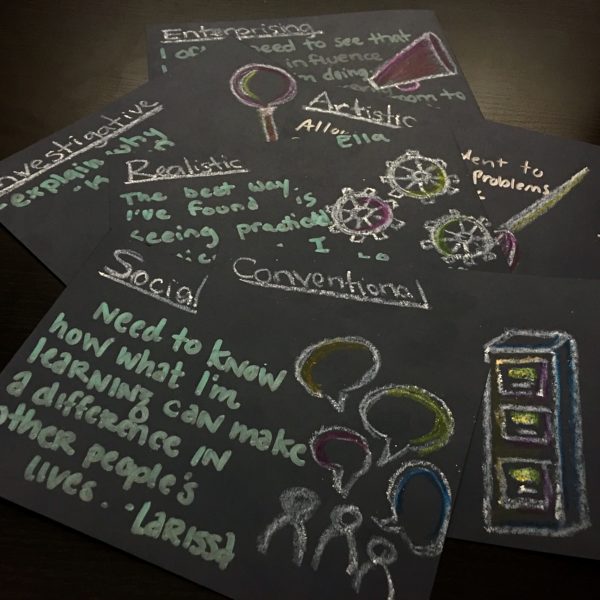 Enterprising
need to see that
influence
doing
to
Artistic
Ella
Investigative
explain why
Realistic
The best way
I've found is
seeing practical
I
problems
to
Social
Conventional
Need to know
how what I'm
learning can make
a difference in
other people's
lives.. Larissa